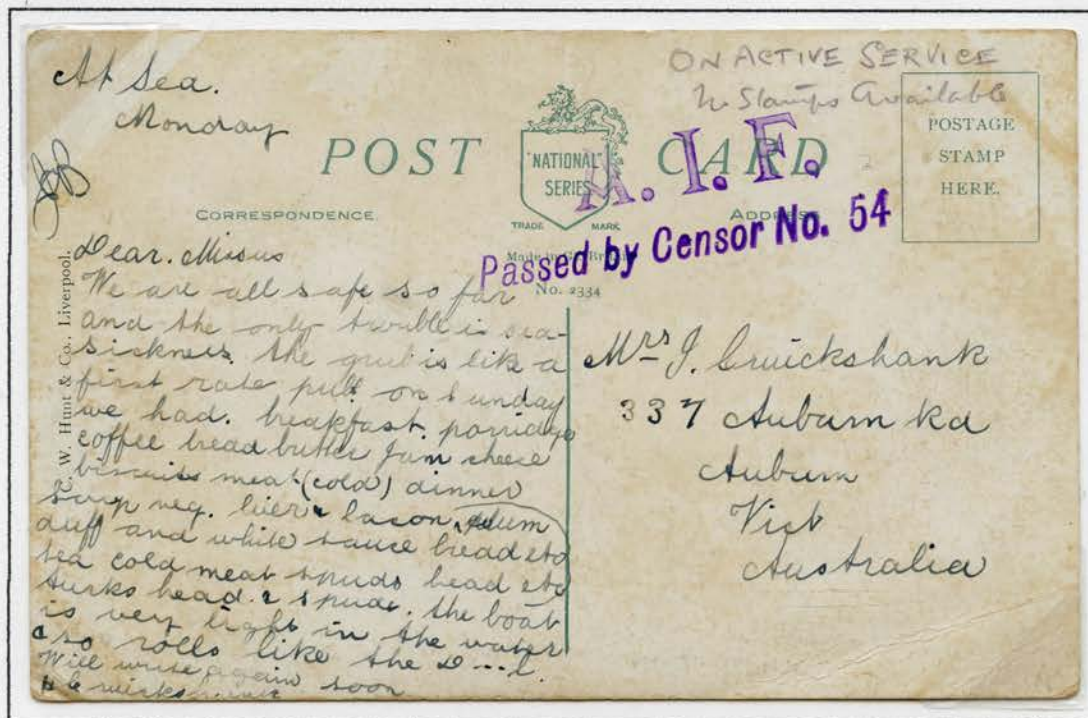 At Sea.
Monday
ON ACTIVE SERVICE
No Stamps Available
POST CARD
"NATIONAL"
SERIES
TRADE MARK
CORRESPONDENCE
ADDRESS
POSTAGE
STAMP
HERE.
A. I. F.
Passed by Censor No. 54
No. 2334
W. Hunt & Co., Liverpool.
Dear. Missus
We are all safe so far
and the only trouble is sea-
sickness. the grub is like a
first rate pub on Sunday
we had. breakfast. porridge
coffee bread butter Jam cheese
biscuits meat (cold) dinner
soup veg. liver & bacon, plum
duff and white sauce bread etc
tea cold meat spuds bread etc
turks head & spuds. the boat
is very light in the water
& so rolls like the D...l.
Will write again soon
Mrs J. Cruickshank
337 Auburn Rd
Auburn
Vict
Australia